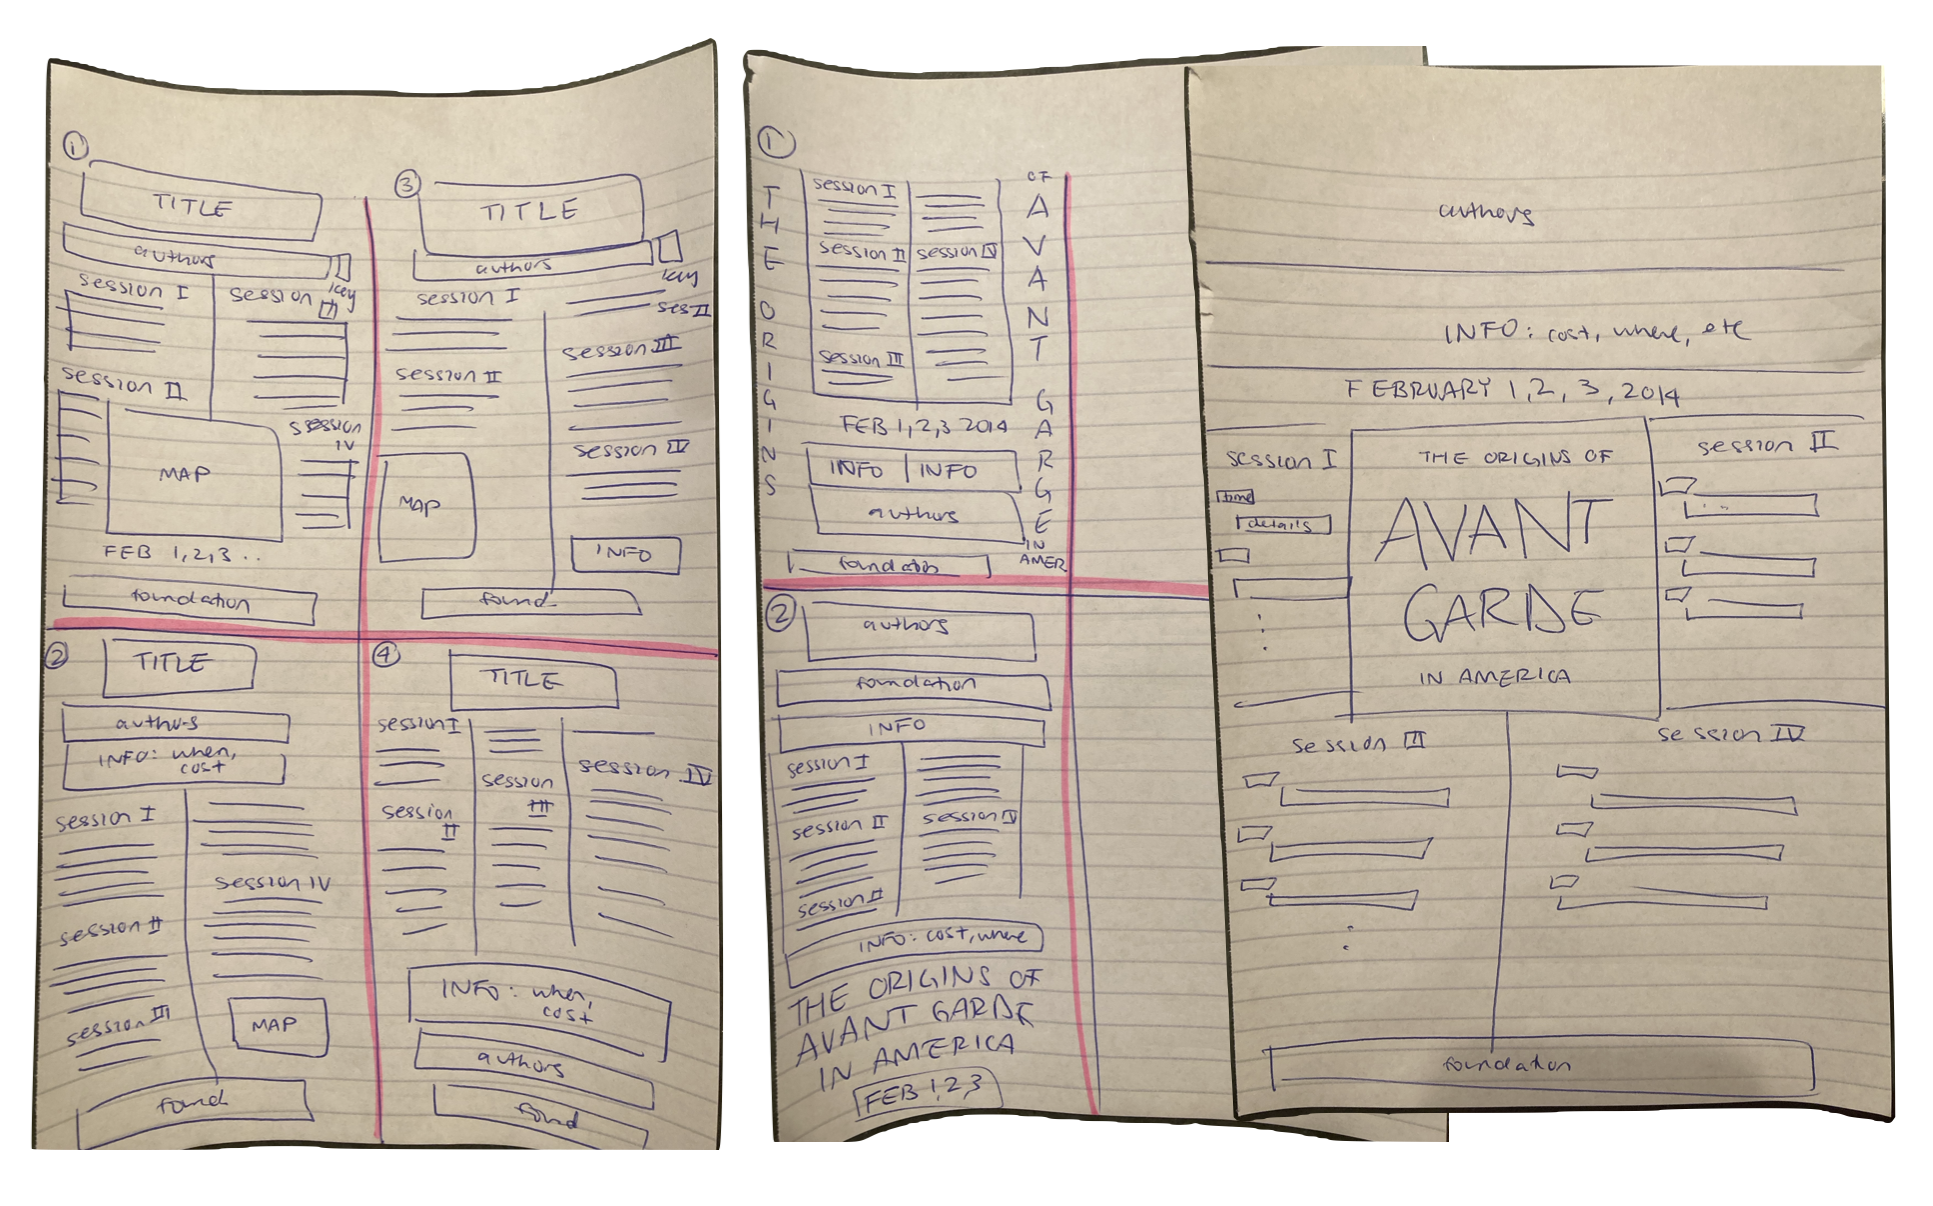 1
TITLE
authors
key
session I
session III
session II
session IV
MAP
FEB 1,2,3 ..
foundation
3
TITLE
authors
key
session I
ses II
session III
session II
session IV
MAP
INFO
found
2
TITLE
authors
INFO: when,
cost
session I
session IV
session II
session III
MAP
found
4
TITLE
session I
session
III
session IV
session
II
INFO: when,
cost
authors
found
1
THE ORIGINS
session I
session II
session IV
session III
FEB 1,2,3 2014
INFO | INFO
authors
foundation
OF
AVANT GARGE
IN
AMER
2
authors
foundation
INFO
session I
session II
session IV
session II
INFO: cost, where
THE ORIGINS OF
AVANT GARDE
IN AMERICA
FEB 1,2,3
authors
INFO: cost, where, etc
FEBRUARY 1,2,3,2014
session I
time
details
THE ORIGINS OF
AVANT
GARDE
IN AMERICA
session II
session III
session IV
foundation